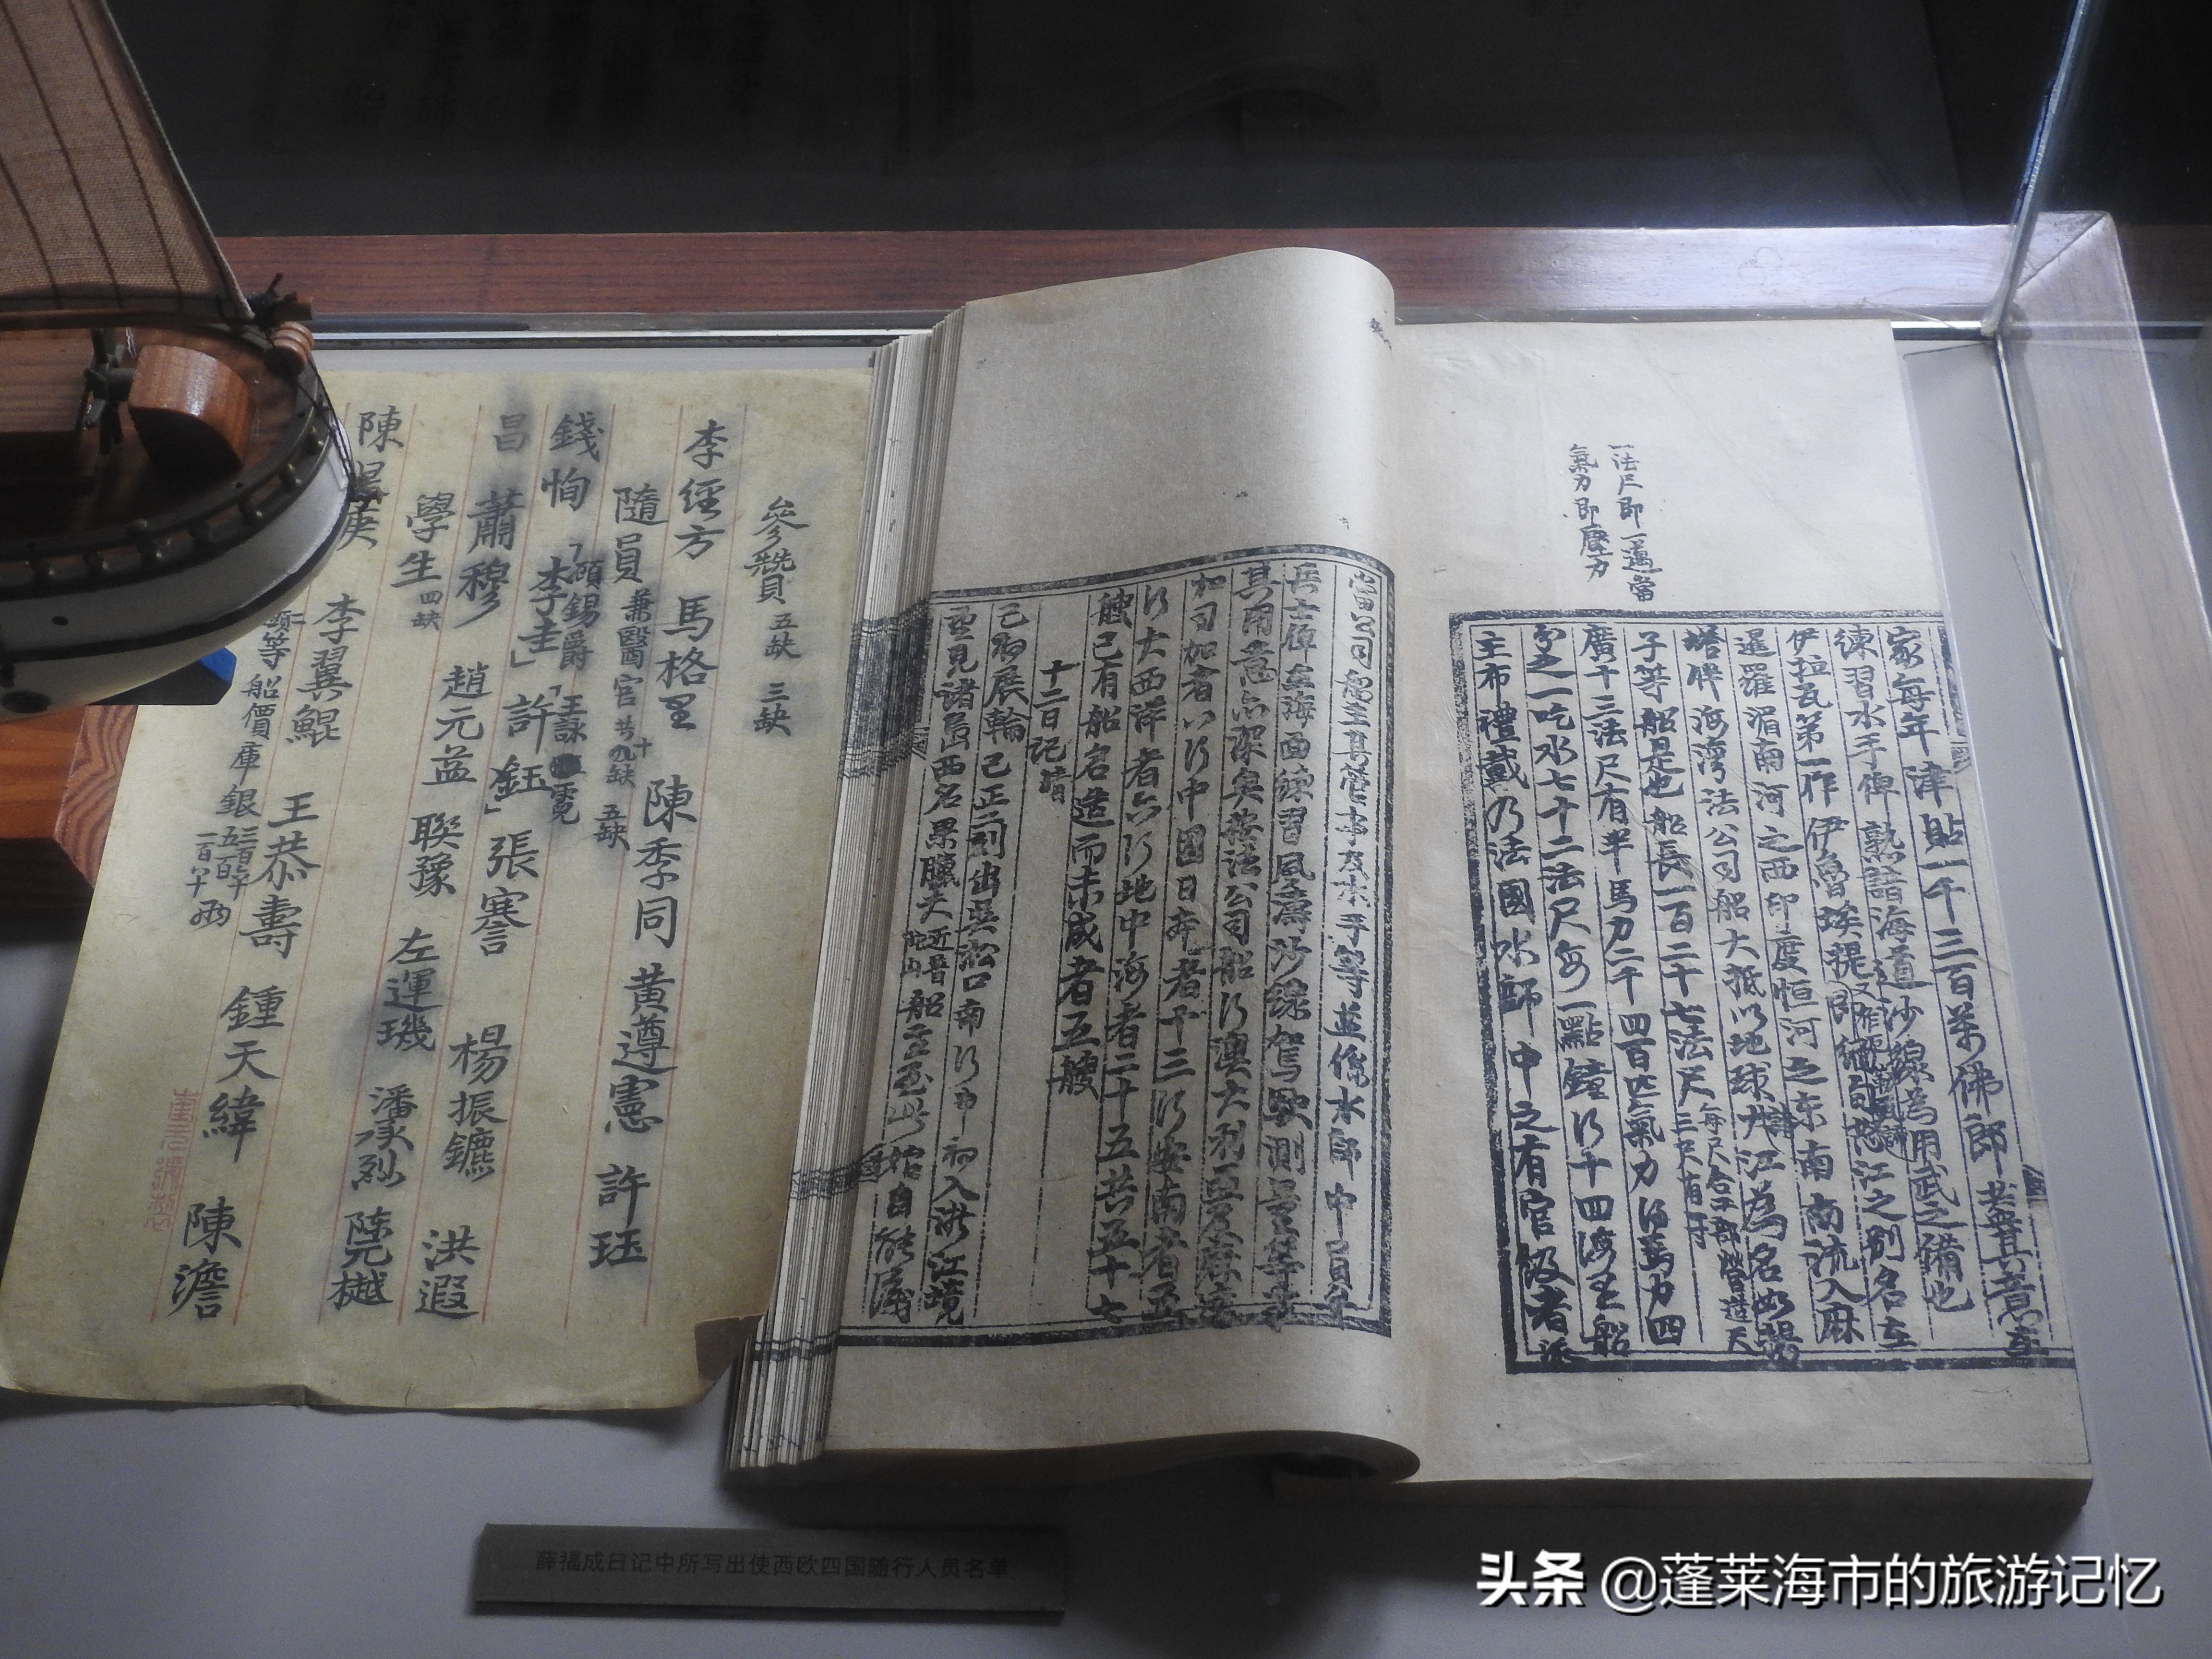 一法尺即一邁當
氣力即壓力
家每年津貼一千三百萬佛郎其意至
練習水手俾熟諳海道沙線為用武之備也
伊拉瓦第一作伊魯埃提江之別名在
暹羅湄南河之西印度恒河之东南南流入麻
塔牌海湾法公司船大抵以地球大江為名如揚
子等船是也船長一百二十七法尺
廣十三法尺有半馬力二千四百匹氣力得馬力四
分之一吃水七十二法尺每一點鐘行十四海里船
主布禮戴乃法國水師中之有官級者
當公司船主其管事及水手等並係水師中員弁
兵士俾在海面練習風濤沙線駕駛測量等事
其用意亦深矣按法公司船行澳大利亞
如司加者八行中國日本者十三行安南者五
行大西洋者六行地中海者二十五共五十七
艘已有船名造而未成者五艘
十二日记晴
已初展輪已正二刻出吳淞口南行申初入浙江境
望見諸島山西名果臘夫船至此始自能淺
參贊 五缺 三缺
李經方 馬格里 陳季同 黃遵憲 許珏
隨員 兼醫官 共十九缺 五缺
錢恂 顧錫爵 王詠霓
李圭 許鈺 張骞
昌 蕭穆 趙元益 聯豫 楊振鑣 洪遐
學生 四缺 左運璣 潘承烈 陈元樾
陳 李翼鯤 王恭壽 鍾天緯 陳澹
等船價庫銀
薛福成日记中所写出使西欧四国随行人员名单
头条 @蓬莱海市的旅游记忆